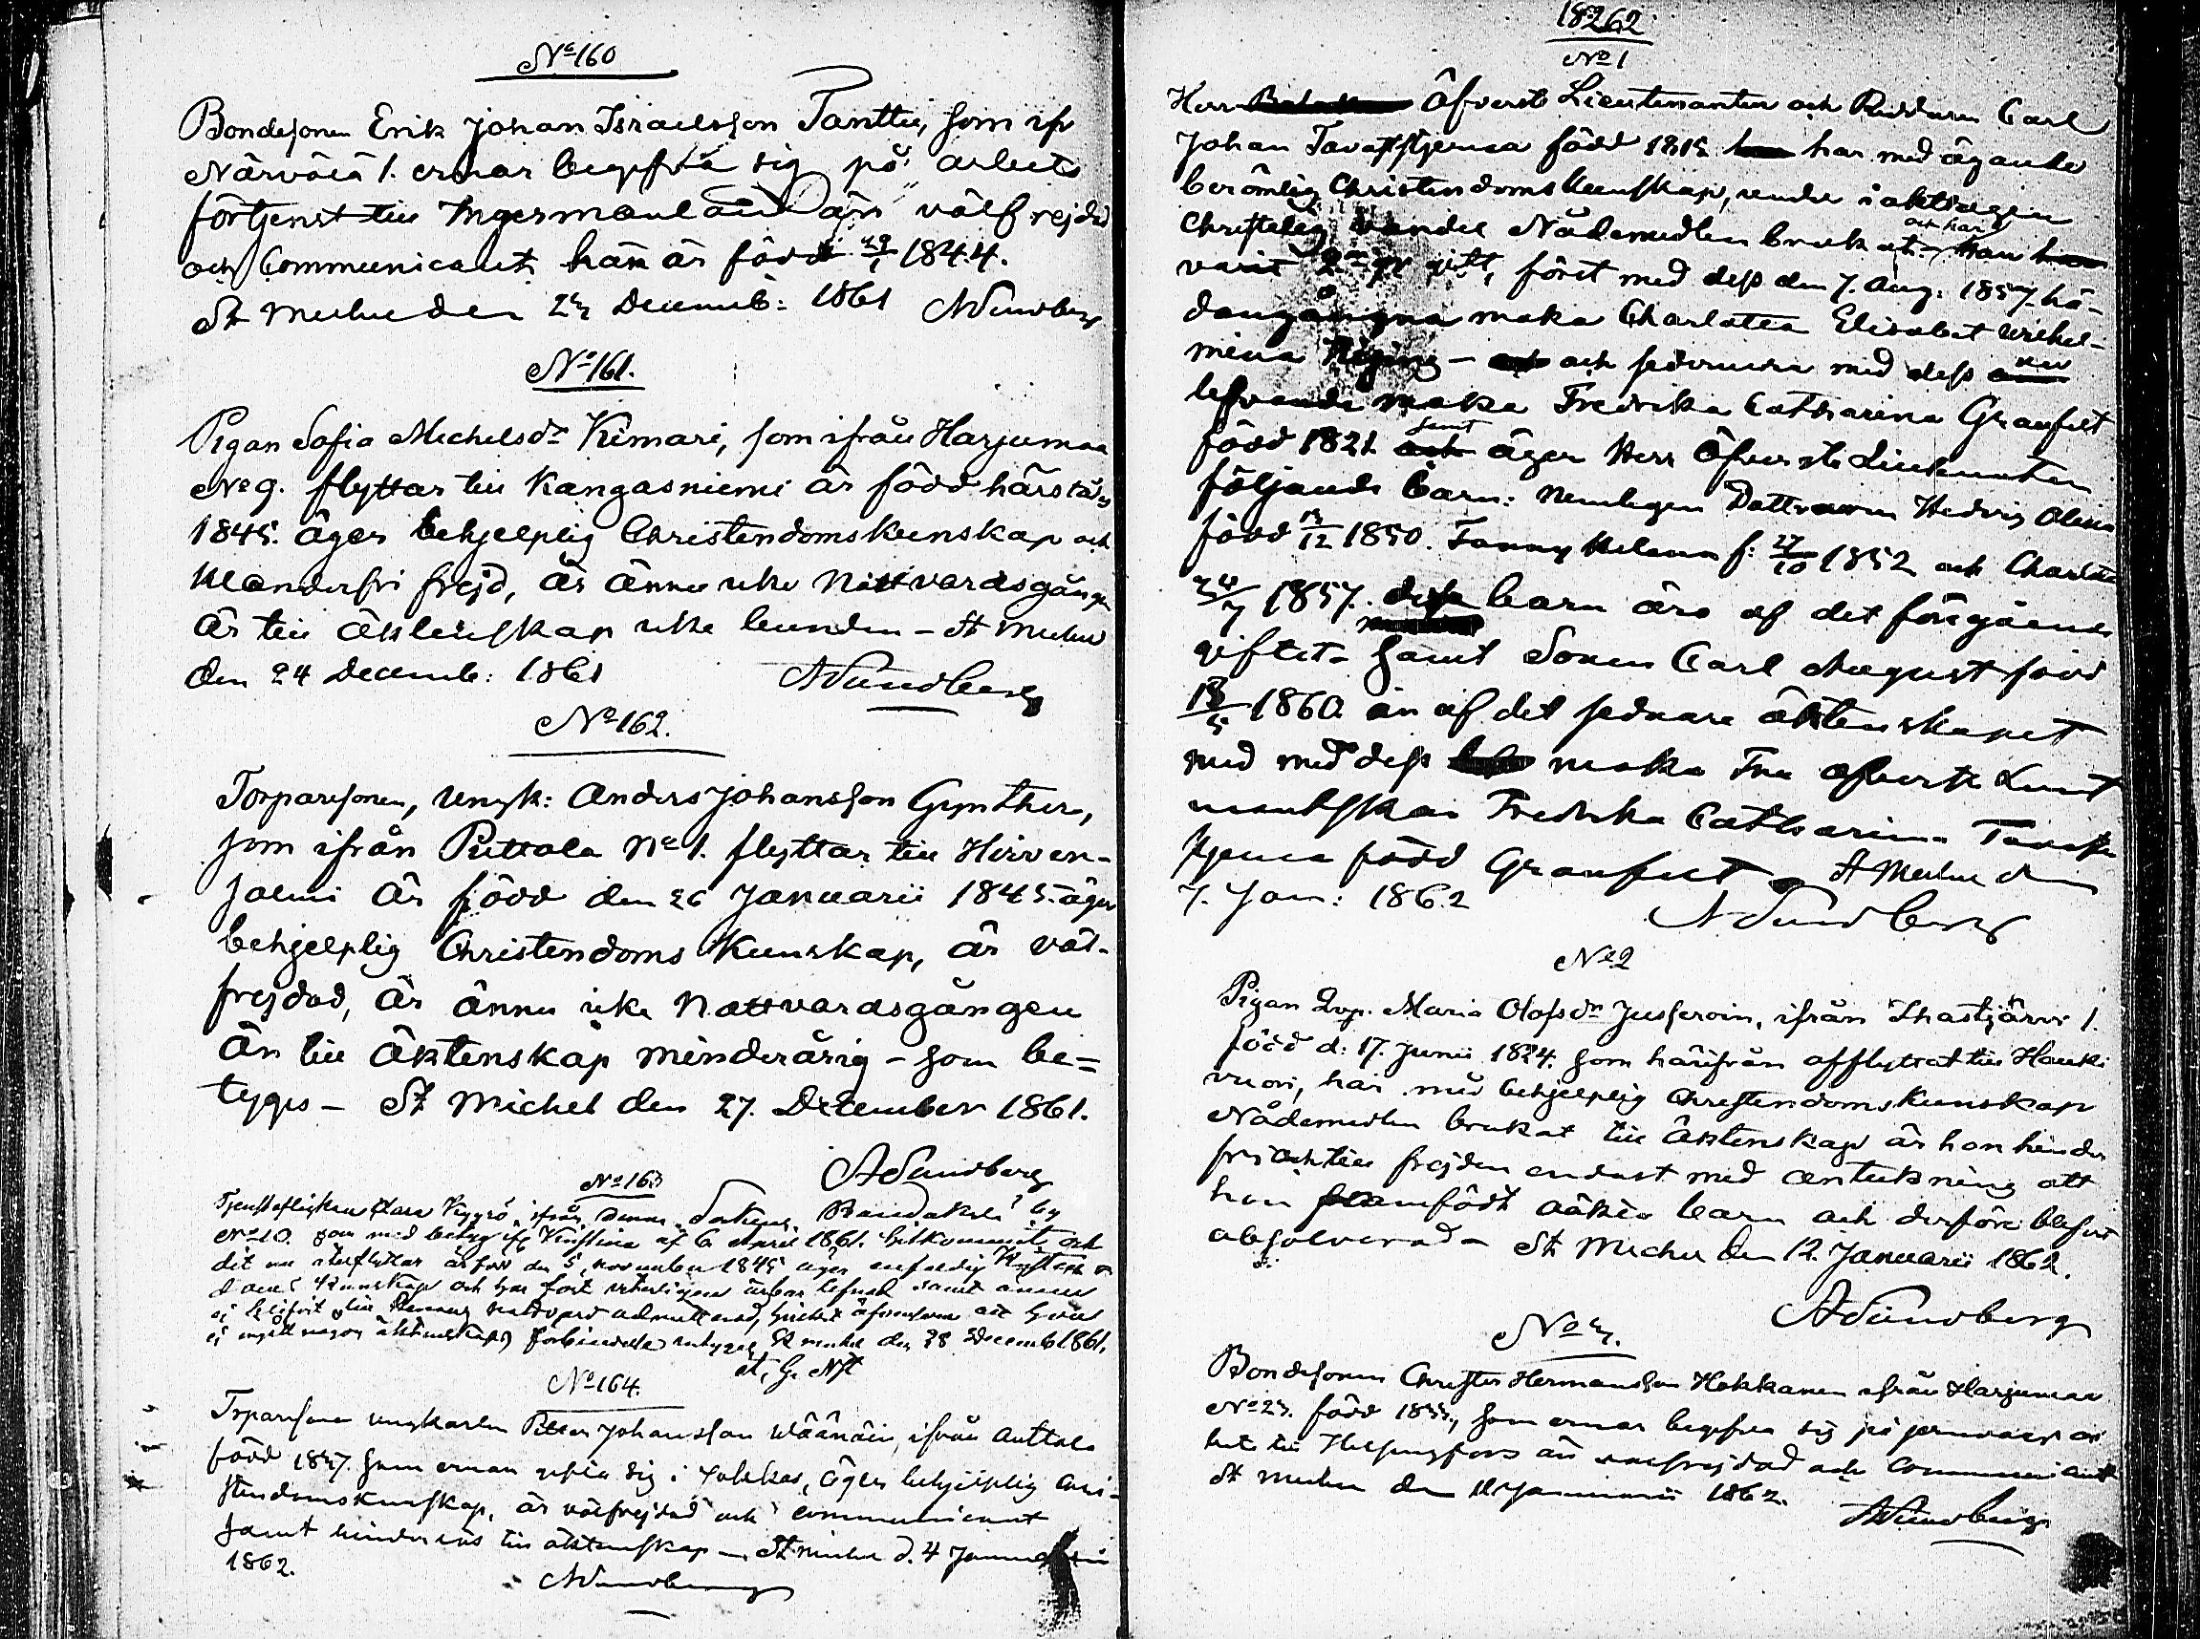 No 160
Bondesonen Erik Johan Israelsson Tanttu, som ifr
Närvälä 1. ernar begifva sig på arbets
förtjenst till Ingermanland är välfrejdad
och Communicant, han är född 29/1 1844.
St Michel den 23 Decemb: 1861 ASundberg
No 161.
Pigan Sofia Michelsdr Kimari, som ifrån Harjumaa
No 9. flyttar till Kangasniemi är född härstädes
1845. äger behjelplig Christendomskunskap och
klanderfri frejd, är ännu icke Nattvardsgången
Är till äktenskap icke bunden – St Michel
den 24 Decemb: 1861 ASundberg
No 162.
Torparesonen, Ungk: Anders Johansson Gynther,
som ifrån Puttola No 1. flyttar till Hirven-
salmi är född den 26 Januarii 1845. äger
behjelplig Christendoms Kunskap, är väl-
frejdad, är ännu icke Nattvardsgången
Än till Äktenskap minderårig – som be=
tygas – St Michel den 27. December 1861.
ASundberg
No 163
Tjensteflickan Clara ifrån denna Sockens Randakylä by
No 10. som med betyg af 6 April 1861. hitkommit och
dit nu återflyttar är född den 5 november 1845 äger enfaldig Christen
doms Kunskap och har fört veterligen ärbar lefnad samt ännu
ej blifvit till Herrans nattvard admitterad, äfvensom att hon
ej ingått någon äktenskaps förbindelse intygas St Michel den 28 Decemb 1861.
No 164.
Torparesonen ungkarlen Petter Johansson Wäänäin, ifrån Anttola
född 1837. som ernar gifta sig i Jokkas, äger behjelplig Chri-
stendomskunskap, är välfrejdad och communicant
samt hinderslös till äktenskap – St Michel d. 4 Januarii
1862. ASundberg
1862
No 1
Herr Öfverste Lieutenanten och Riddaren Carl
Johan Tavaststjerna född 1815 har med ägande
berömlig Christendomskunskap, under iakttagen
Christelig vandel Nådemedlen brukat och har
varit 2ne gr gift, först med dess den 7. Aug: 1857 hä-
dangångna maka Charlotta Elisabet Wilhel-
mina – och sednare med dess nu
lefvande maka Fredrika Catharina Granfelt
född 1821 samt äger Herr Öfverste Lieutenanten
följande barn: Nemligen Döttrarna Hedvig Olivia
född 13/12 1850. Fanny Helena f: 27/10 1852 och Charlotta
1857. dessa barn äro af det föregående
giftet – samt Sonen Carl August född
13/5 1860 är af det sednare äktenskapet
med dess maka Fru Öfverste Lieut
nantskan Fredrika Catharina Tavast
stjerna född Granfelt – St Michel den
7. Jan: 1862
ASundberg
No 2
Pigan Qvp. Maria Olofsdr Jussroin, ifrån Ihastjärvi 1.
född d: 17. Junii 1824. som härifrån afflyttat till Hauki
vuori, har med behjelplig Christendomskunskap
Nådemedlen brukat till Äktenskap är hon hinder
fri och till frejden endast med anteckning att
hon framfödt oäkta barn och derföre blifvit
absolverad – St Michel den 12. Januarii 1862.
ASundberg
No 3.
Bondesonen Christer Hermansson Hokkanen ifrån Harjumaa
No 23. född 1833, som ernar begifva sig på
till Helsingfors är välfrejdad och Communicant
St Michel den Januarii 1862.
ASundberg